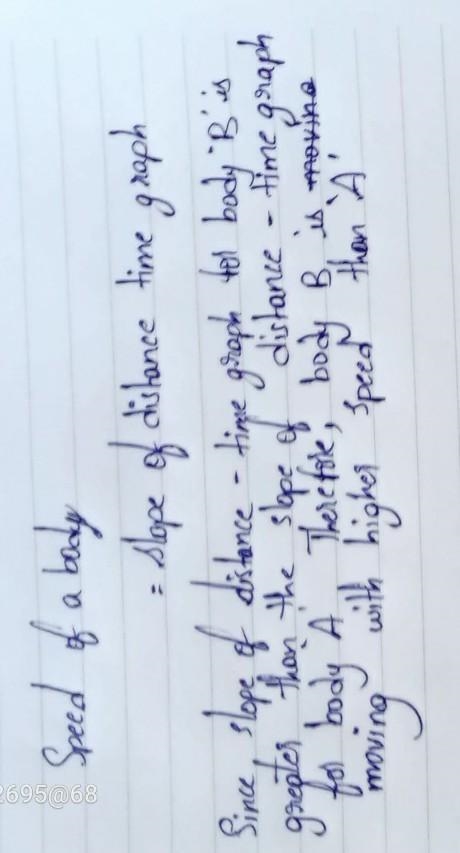 Speed of a body
= slope of distance time graph
Since slope of distance - time graph for body 'B' is
greater than the slope of distance - time graph
for body 'A' Therefore, body B is moving
moving with higher speed than 'A'
2695@68